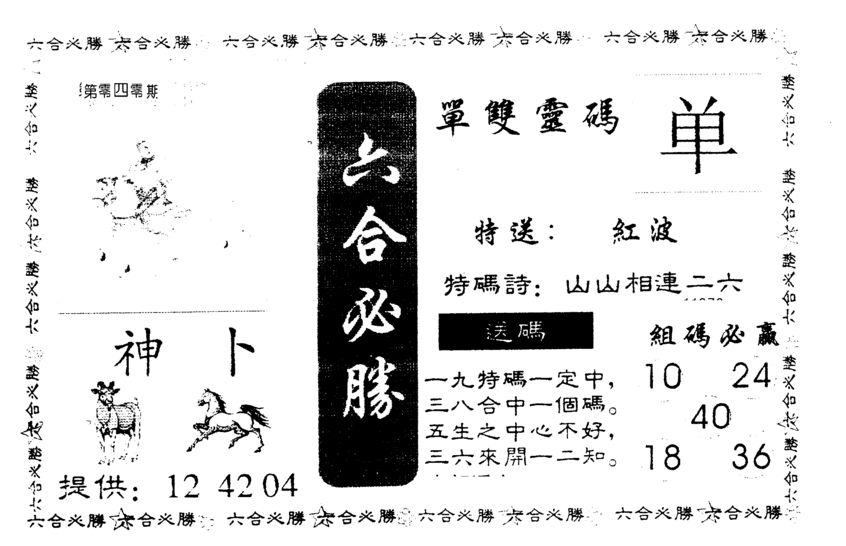 六合必勝 六合必勝 六合必勝 六合必勝 六合必勝 六合必勝 六合必勝 六合必勝
第零四零期
神 卜
提供：12 42 04
六合必勝
單雙靈碼
单
特送：紅波
特碼詩：山山相連二六
送碼
一九特碼一定中，
三八合中一個碼。
五生之中心不好，
三六來開一二知。
組碼必贏
10 24
40
18 36
六合必勝 六合必勝 六合必勝 六合必勝 六合必勝
六合必勝 六合必勝 六合必勝 六合必勝 六合必勝
六合必勝 六合必勝 六合必勝 六合必勝 六合必勝 六合必勝 六合必勝 六合必勝